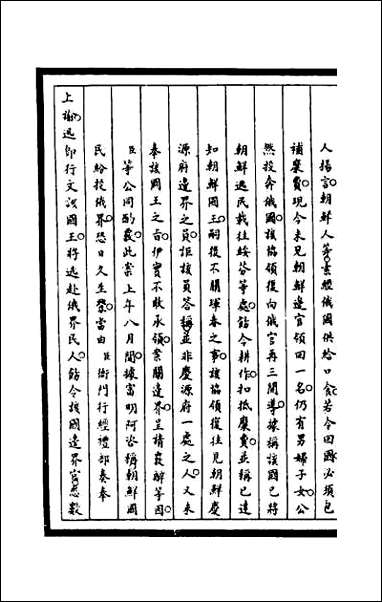 人揚言朝鮮人等業經俄國供給口食若令回國必須包
補糜費現今未見朝鮮邊官領回一名仍有男婦子女公
然投奔俄國該協領復向俄官再三開導據稱該國已將
朝鮮逃民載往綏芬等處飭令耕作扣抵糜費並稱已達
知朝鮮國王嗣後不關琿春之事該協領復往見朝鮮慶
源府邊界之員詎該員答稱並非慶源府一處之人又未
奉該國王之旨伊實不敢承領業關邊界呈請裁酌等因
臣等公同酌覈此案上年八月間據富明阿咨稱朝鮮國
民給投俄界恐日久生釁當由臣衙門行經禮部奏奉
上諭迅即行文該國王將逃赴俄界民人飭令該國邊界官悉數